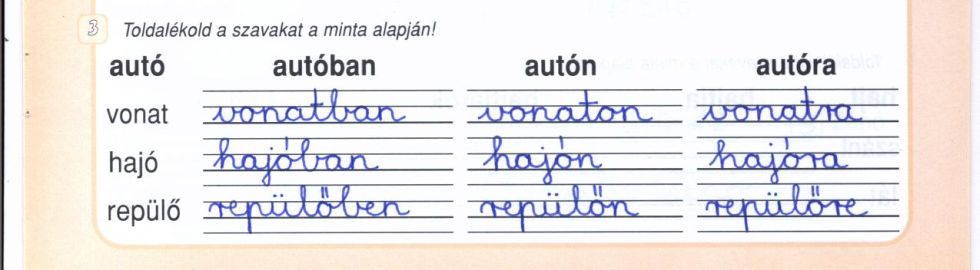 3 Toldalékold a szavakat a minta alapján!
autó autóban autón autóra
vonat vonatban vonaton vonatra
hajó hajóban hajón hajóra
repülő repülőben repülőn repülőre